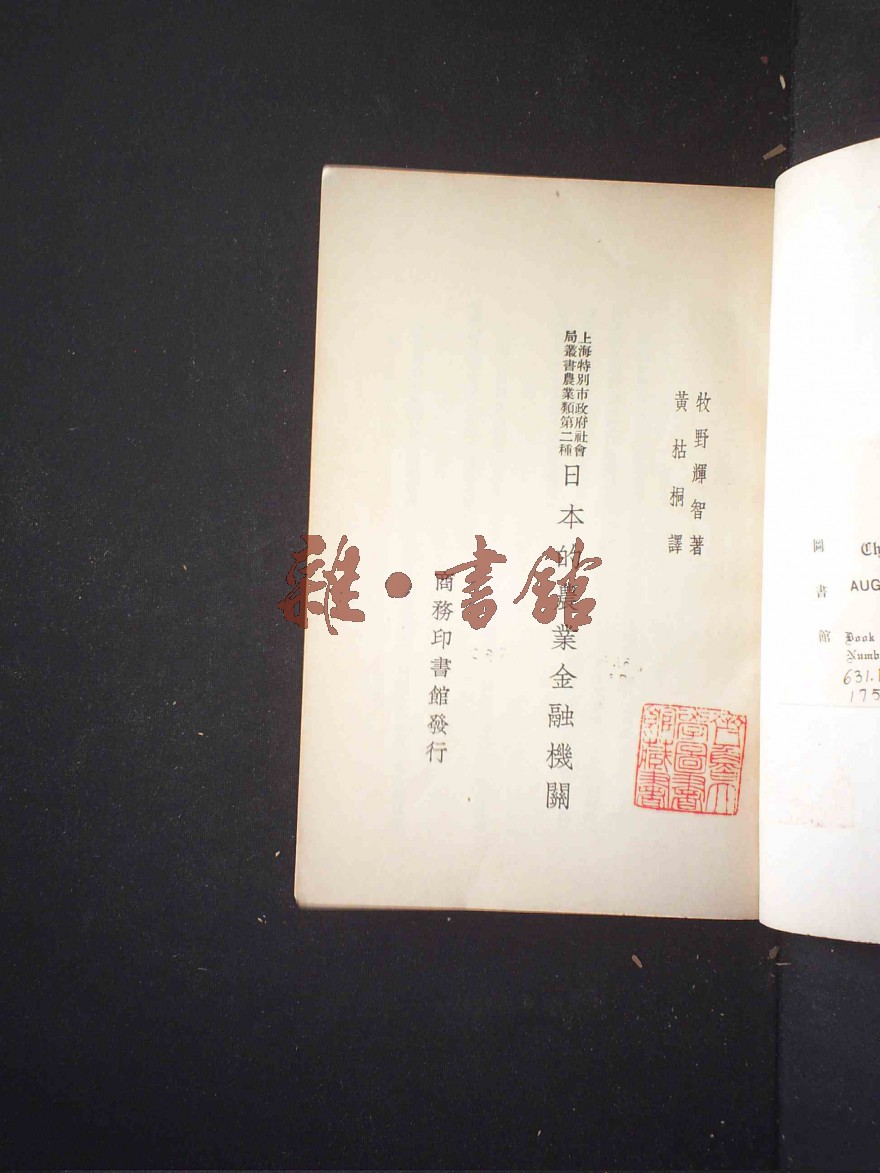 牧野輝智著
黃枯桐譯
上海特別市政府社會
局叢書農業類第二種
日本的農業金融機關
商務印書館發行
雜·書館
圖書館
Ch
AUG
Book
Numb
631.1
175